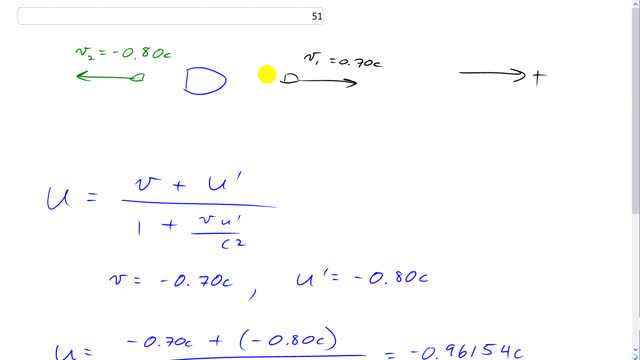 51
v₂ = -0.80c
v₁ = 0.70c
+
u = (v + u') / (1 + vu'/c²)
v = -0.70c , u' = -0.80c
u = -0.70c + (-0.80c) = -0.96154c